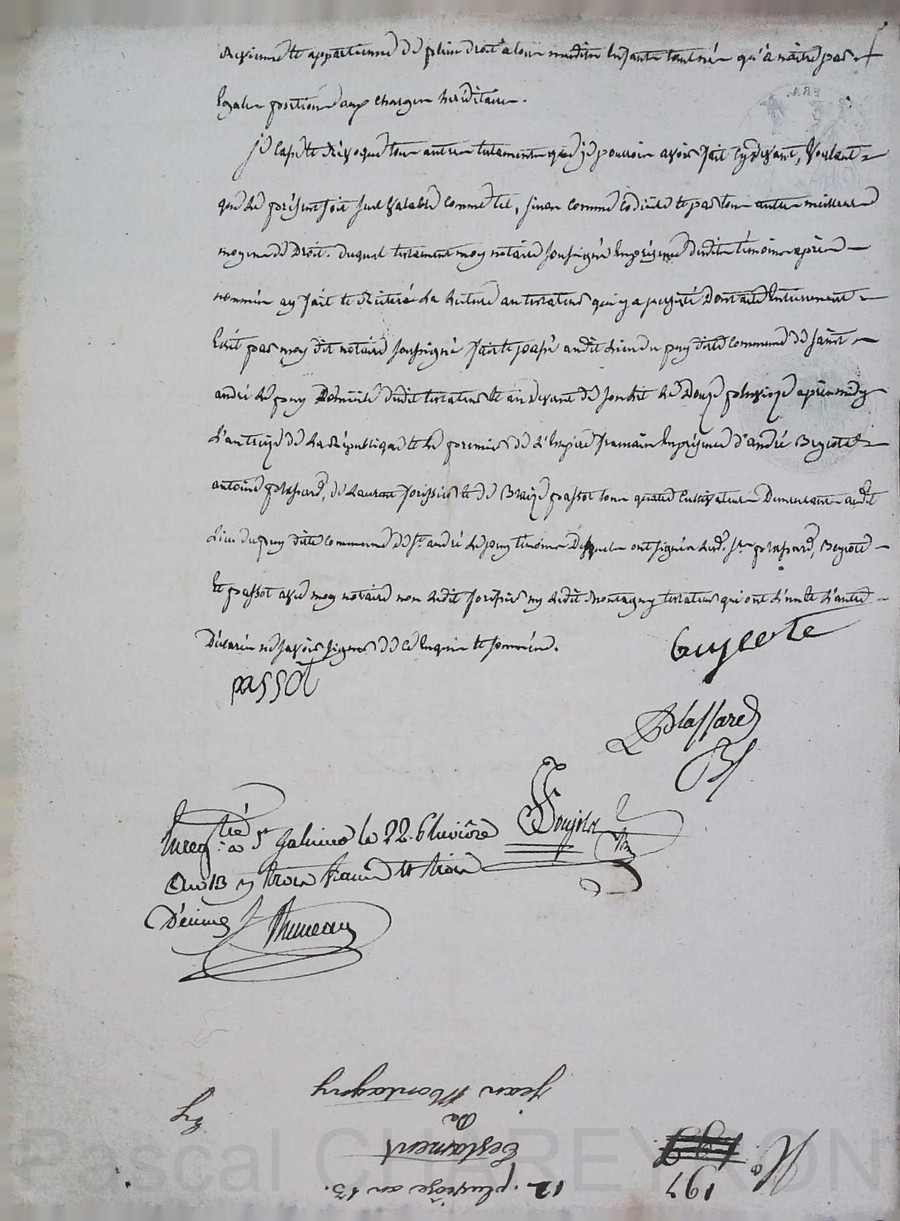 revienne et appartienne de plein droit à leur enfants tant nés qu'à naître par
Egales portions aux charges héréditaires.
je casse et révoque tous autres testaments que je pourrois avoir fait cy devant, Voulant
que le présent soit seul valable comme tel, sinon comme codicile et par tous autres meilleurs
moyens de Droit. duquel testament moy notaire soussigné En présence desdits témoins après
nommés ay fait et réitéré la lecture au testateur qui y a persisté Entierement
Ecrit par moy dit notaire soussigné fait et passé audit lieu du puy dite commune de saint
andré le puy Domicile dudit testateur le douze pluviose après midy
L'an treize de la République et le premier de L'Empire français En présence d'andré Beycote
antoine plassard, de Laurent forissier et de Blaize passot tous quatre Cultivateurs Demeurants audit
Lieu du puy dite commune de St. andré le puy témoins Desquels ont signé lesd. srs. plassard, Beycote
Et passot avec moy notaire non Ledit forissier ny Ledit Montagny testateur qui ont L'un et L'autre
Déclarés ne savoir signer de ce Enquis et sommés.
Beycote
passot
Plassard
Enregtré à St Galmier le 22 Pluviôse
an 13 reçu trois francs et trois
Décimes
12 pluviôse an 13.
Testament
de
jean Montagny
No
197